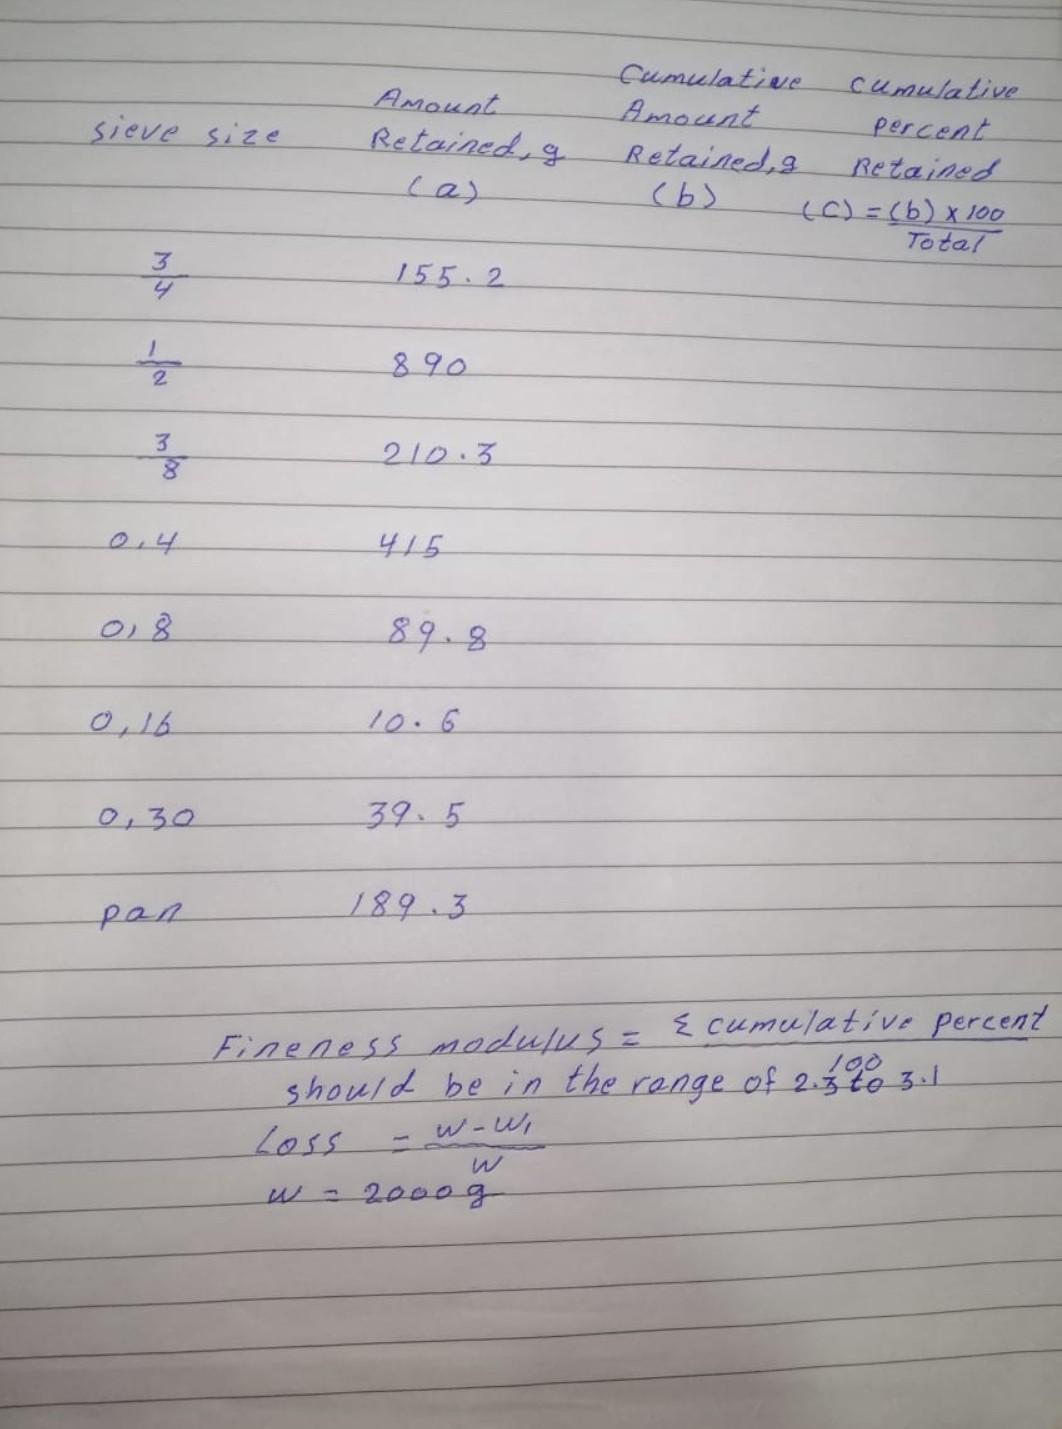 Cumulative cumulative
Amount Amount percent
sieve size Retained, g Retained,g Retained
(a) (b) (C) = (b) x 100
Total
3/4 155.2
1/2 890
3/8 210.3
0.4 415
0,8 89.8
0,16 10.6
0,30 39.5
pan 189.3
Fineness modulus = Σ cumulative percent
100
should be in the range of 2.3 to 3.1
Loss = W-W1
W
W = 2000 g